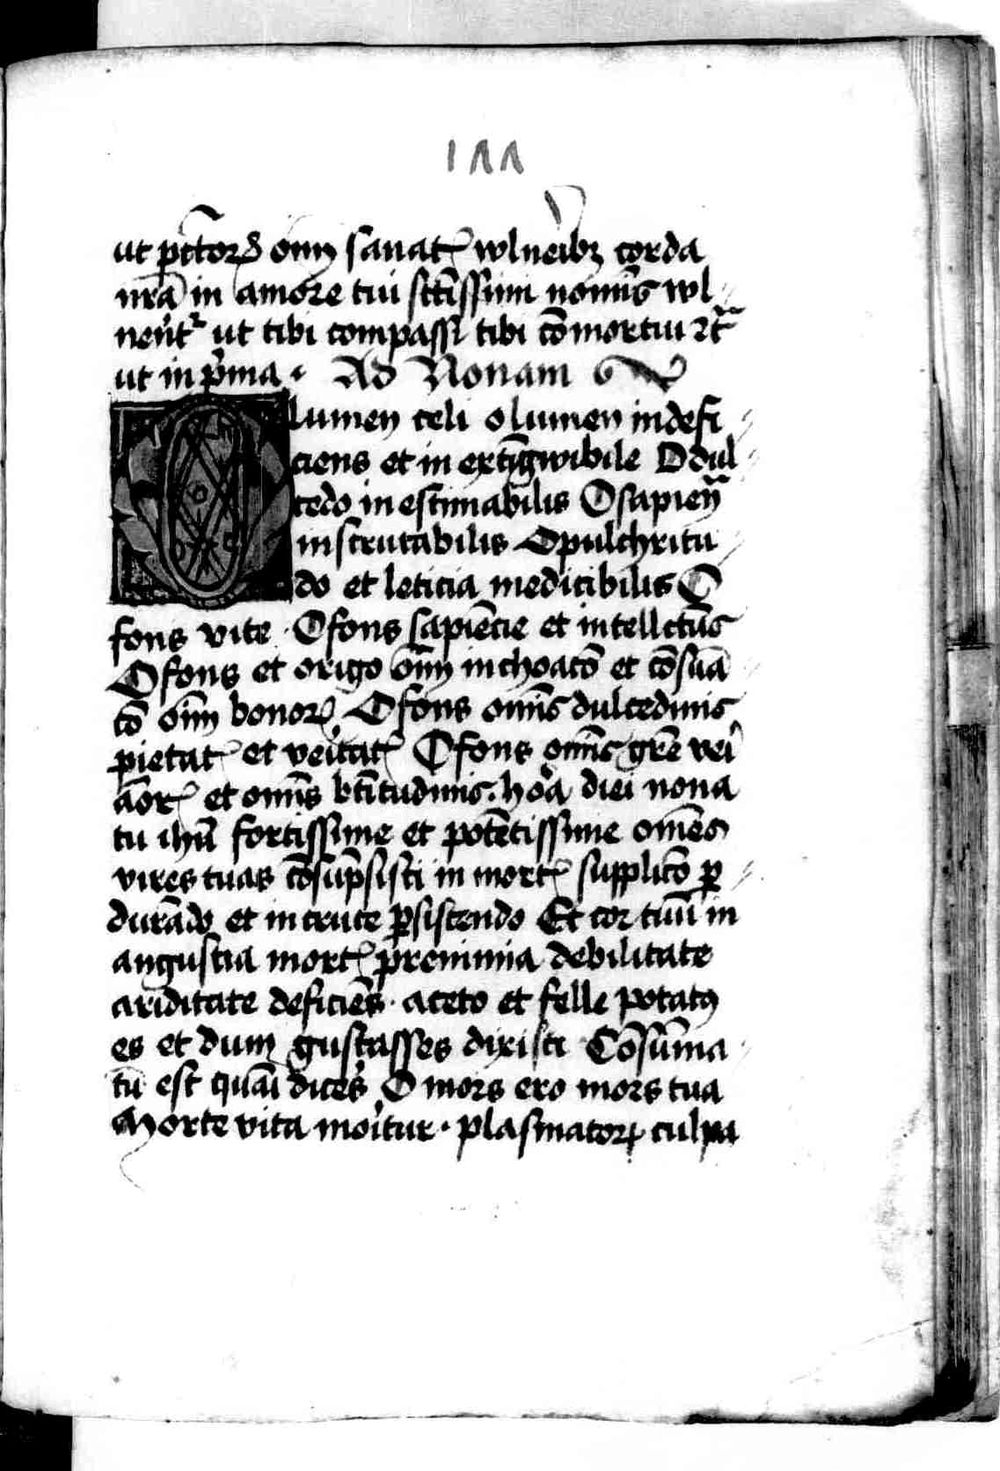 1ΛΛ
ut pctorꝝ om̄ sanatꝭ wlneribꝫ corda
nrā in amore tui sctīssimi nomīs wl
nerētʳ ut tibi compassi tibi cōmortui ⁊ct̄
ut in pͥma · Ad Nonam
O lumen celi o lumen indefi
ciens et in extīgwibile O dul
cedo in estimabilis O sapien̄
inscrutabilis O pulchritu
do et leticia inedicibilis O
fons vite · O fons sapiēcie et intellctūs
O fons et origo oīm inchoatō et cōsūā
tō oīm bonorꝝ O fons omīs dulcedinis
pietatꝭ et veritatꝭ O fons omīs grē vei
aor̄ꝝ et omīs btītudinis · hora diei nona
tu ihū fortissime et potētissime omēs
vires tuas cōsūpsisti in mortꝭ supplicō ꝑ
durādo et in cruce ꝑsistendo Et cor tuū in
angustia mortꝭ pre nimia debilitate
ariditate deficiēs · aceto et felle potatꝰ
es et dum gustasses dixisti Cōsūma
tū est quāi diceres O mors ero mors tua
Morte vita moritur · plasmatorꝝ culpa